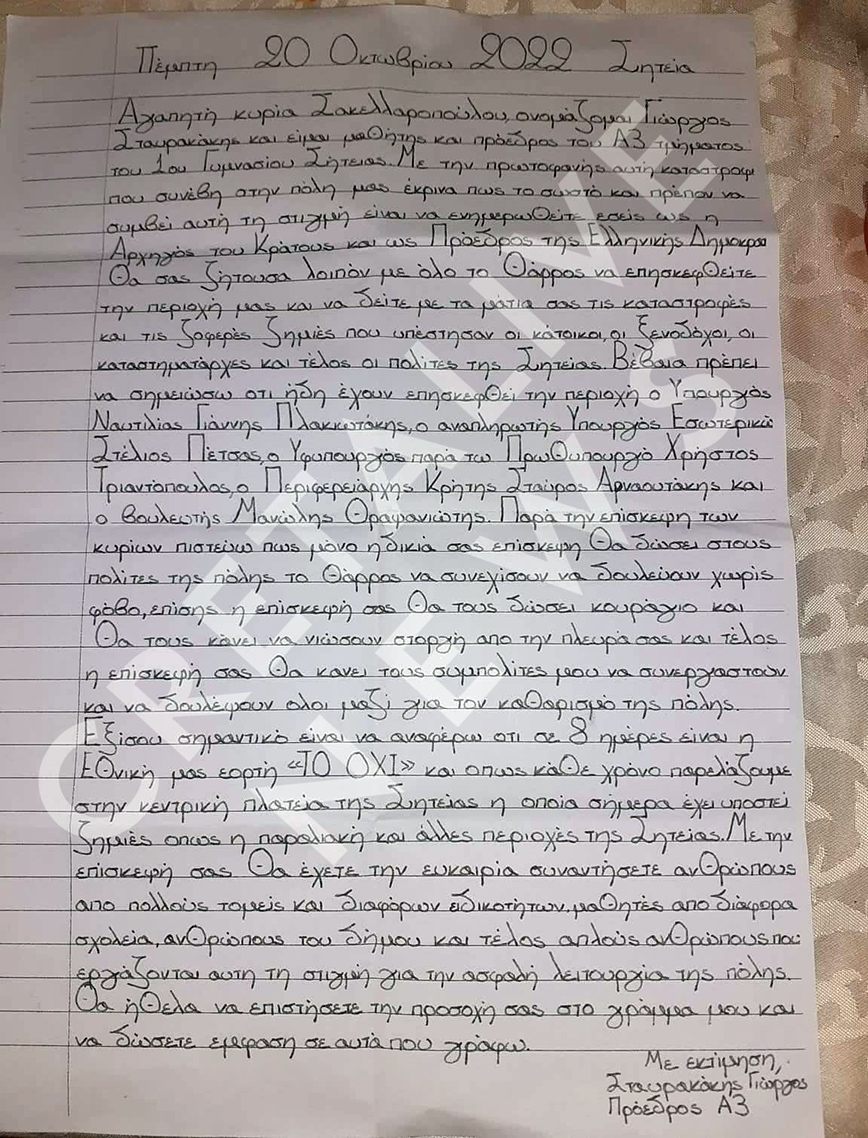 Πέμπτη 20 Οκτωβρίου 2022 Σητεία
Αγαπητή κυρία Σακελλαροπούλου, ονομάζομαι Γιώργος
Σταυρακάκης και είμαι μαθήτης και πρόεδρος του Α3 τμήματος
του 1ου Γυμνασίου Σητείας. Με την πρωτοφανής αυτή καταστροφ
που συνέβη στην πόλη μας έκρινα πως το σωστό και πρέπον να
συμβεί αυτή τη στιγμή είναι να ενημερωθείτε εσείς ως η
Αρχηγός του Κράτους και ως Πρόεδρος της Ελληνικής Δημοκρα
Θα σας ζητούσα λοιπόν με όλο το Θάρρος να επησκεφθείτε
την περιοχή μας και να δείτε με τα μάτια σας τις καταστροφές
και τις ζοφερές ζημιές που υπέστησαν οι κάτοικοι, οι ξενοδόχοι, οι
καταστηματάρχες και τέλος οι πολίτες της Σητείας. Βέβαια πρέπει
να σημειώσω οτι ήδη έχουν επησκεφθεί την περιοχή ο Υπουργός
Ναυτιλίας Γιάννης Πλακιωτάκης, ο αναπληρωτής Υπουργός Εσωτερικώ
Στέλιος Πέτσας, ο Υφυπουργός παρά τω Πρωθυπουργό Χρήστος
Τριαντόπουλος, ο Περιφερειάρχης Κρήτης Σταύρος Αρναουτάκης και
ο βουλευτής Μανώλης Θραψανιώτης. Παρά την επίσκεψη των
κυρίων πιστεύω πως μόνο η δικιά σας επίσκεψη Θα δώσει στους
πολίτες της πόλης το Θάρρος να συνεχίσουν να δουλεύουν χωρίς
φόβο, επίσης η επίσκεψή σας Θα τους δώσει κουράγιο και
Θα τους κάνει να νιώσουν στοργή απο την πλευρά σας και τέλος
η επίσκεψή σας Θα κανει τους συμπολίτες μου να συνεργαστούν
και να δουλέψουν ολοι μαζί για τον καθαρισμό της πόλης.
Εξίσου σημαντικό είναι να αναφέρω οτι σε 8 ημέρες είναι η
Εθνική μας εορτή «ΤΟ ΟΧΙ» και οπως κάθε χρόνο παρελάζουμε
στην κεντρική πλατεία της Σητείας η οποία σήμερα έχει υποστεί
ζημιές οπως η παραλιακή και άλλες περιοχές της Σητείας. Με την
επίσκεψή σας Θα έχετε την ευκαιρία συναντήσετε ανθρώπους
απο πολλούς τομείς και διαφόρων ειδικοτήτων, μαθητές απο διάφορα
σχολεία, ανθρώπους του δήμου και τέλος απλούς ανθρώπους που
εργάζονται αυτη τη στιγμή για την ασφαλή λειτουργία της πόλης.
Θα ήθελα να επιστήσετε την προσοχή σας στο γράμμα μου και
να δώσετε έμφαση σε αυτά που γράφω.
Με εκτίμηση,
Σταυρακάκης Γιώργος
Πρόεδρος Α3
CRETALIVE
NEWS